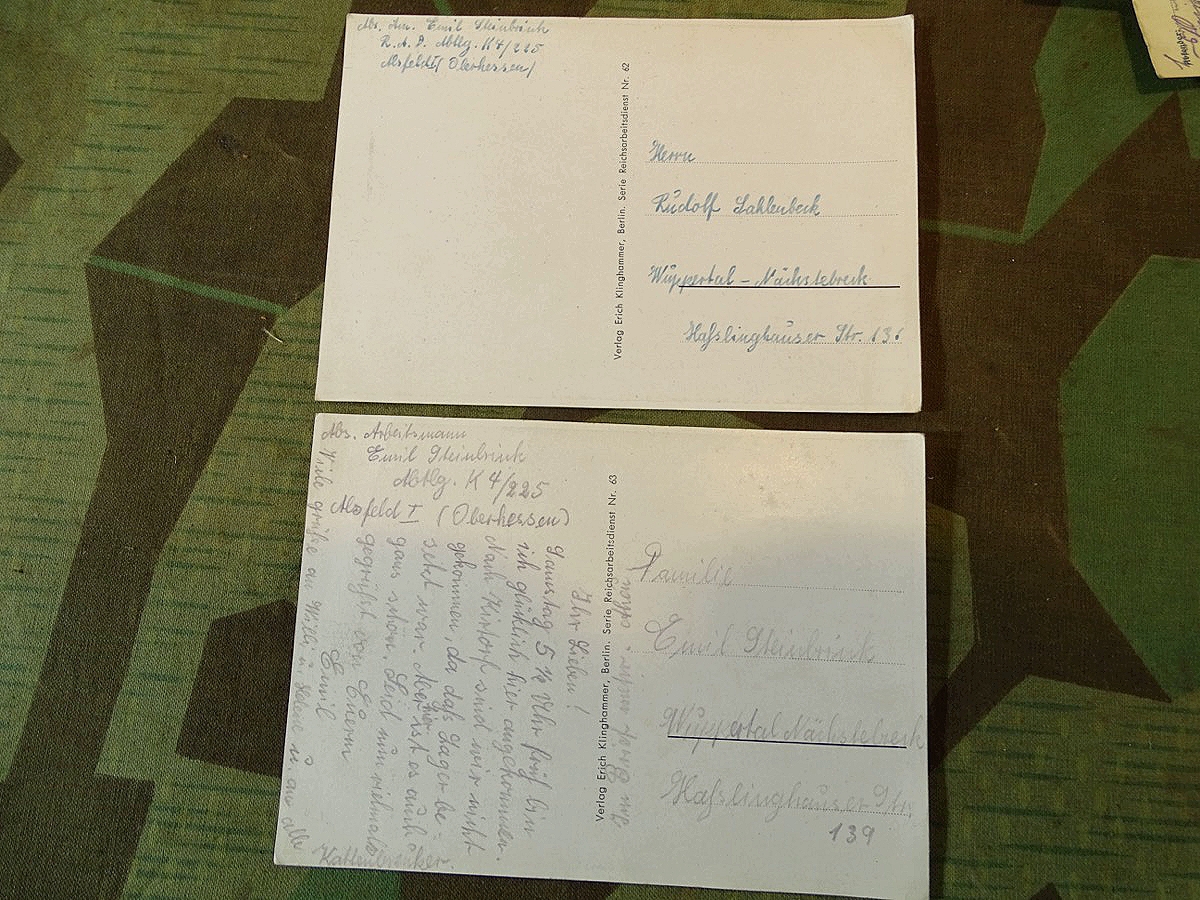 Abs. Am. Emil Steinbrink
R. A. D. Abtlg. K 4/225
Alsfeld I (Oberhessen)
Verlag Erich Klinghammer, Berlin. Serie Reichsarbeitsdienst Nr. 62
Herrn
Rudolf Sahlenbeck
Wuppertal – Nächstebreck
Haßlinghauser Str. 136
Abs. Arbeitsmann
Emil Steinbrink
Abtlg. K 4/225
Alsfeld I (Oberhessen)
Ihr Lieben!
Samstag 5 ½ Uhr früh bin
ich glücklich hier angekommen.
Nach Kirtorf sind wir nicht
gekommen, da daß Lager be-
setzt war. Aber hier ist es auch
ganz schön. Seid nun vielmals
gegrüßt von Eúerm
Emil
Viele grüße an Willi u. Helene u. an alle
Kattenbrenker.
Verlag Erich Klinghammer, Berlin. Serie Reichsarbeitsdienst Nr. 63
Familie
Emil Steinbrink
Wuppertal Nächstebreck
Haßlinghauser Str.
139